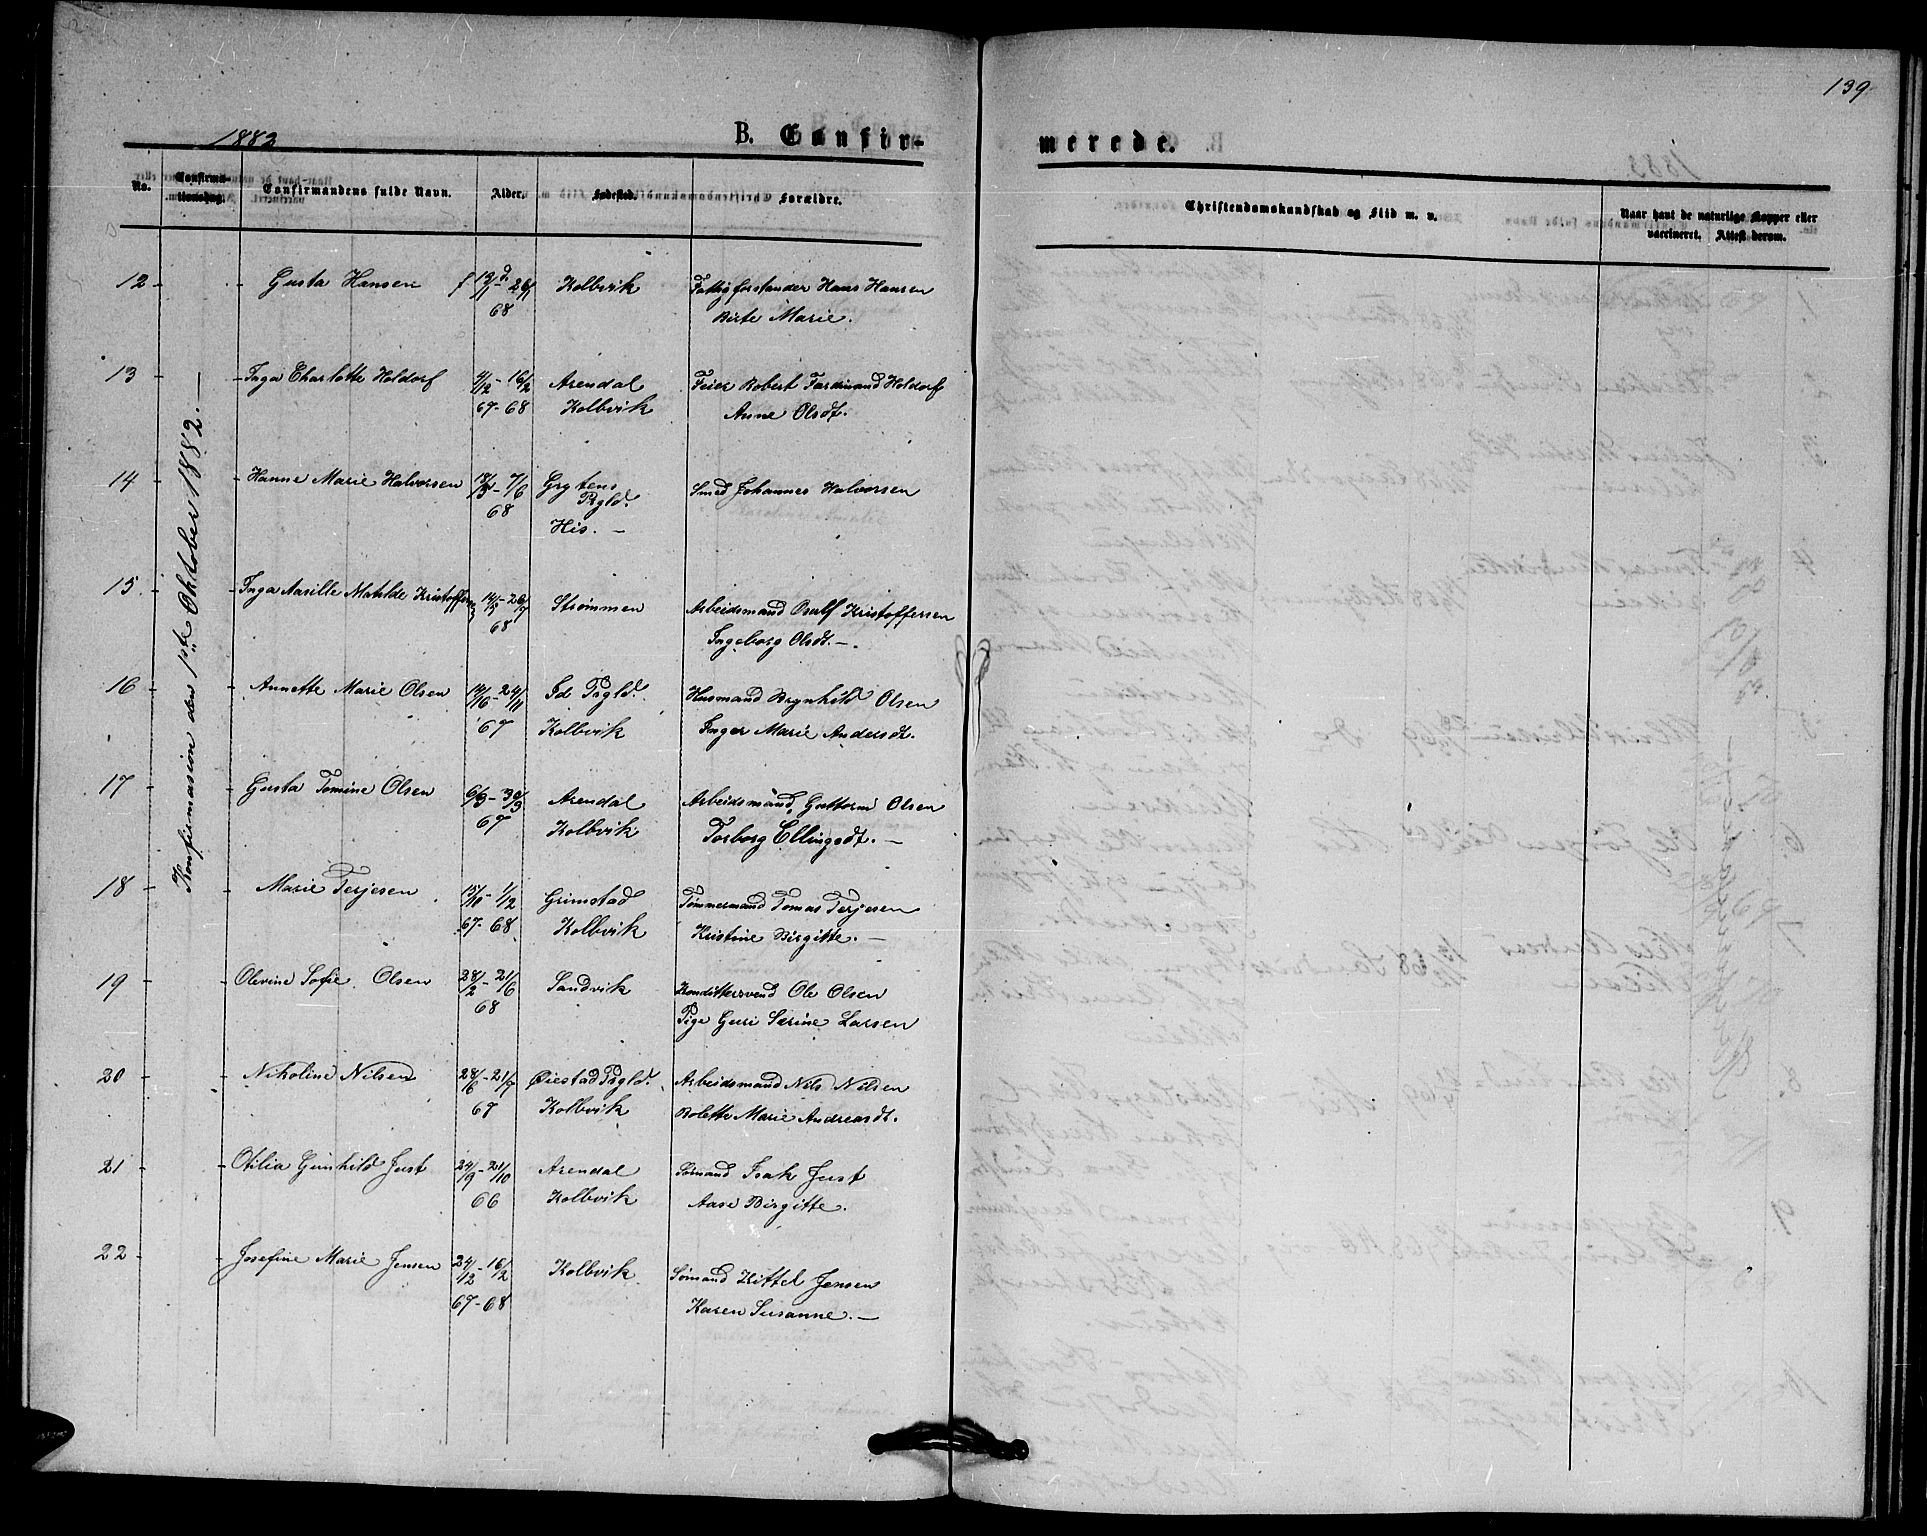 139
1882
B. Confir-
merede.
No.
Confirma-
tionsdag.
Confirmandens fulde Navn.
Alder.
Fødested.
Forældre.
Christendomskundskab og Flid m. v.
Naar havt de naturlige Kopper eller
vaccineret. Attest derom.
Konfirmasion den 1ste Oktober 1882. —
12 Gusta Hansen f 12/1 d. 26/1 Kolbvik Fattigforstander Hans Hansen
68 Birte Marie.
13 Inga Charlotte Holdorf 4/12 - 16/2 Arendal Feier Robert Ferdinand Holdorf
67-68 Kolbvik Anne Olsdt.
14 Hanne Marie Halvorsen - 7/6 Grytens Smed Johannes Halvorsen
68 Prgld.
His. —
15 Inga Aasille Matilde Kristoffersen 14/5 - 26/7 Strømmen Arbeidsmand Osulf Kristoffersen
68 Ingeborg Olsdt. —.
16 Annette Marie Olsen - 24/11 Id Prgld. Husmand Brynhild Olsen
67 Kolbvik Inger Marie Andersdt.
17 Gusta Tomine Olsen 6/3 - 30/3 Arendal Arbeidsmand Guttorm Olsen
67 Kolbvik Torborg Ellingsdt. —
18 Marie Terjesen 15/10 - 1/2 Grimstad Tømmermand Tomas Terjesen
67-68 Kolbvik Kristine Birgitte. —
19 Olevine Sofie Olsen 28/2 - 21/6 Sandvik Kondittersvend Ole Olsen
68 Pige Guri Serine Larsen
20 Nikoline Nilsen 28/6 - 21/7 Øiestad Prgld. Arbeidsmand Nils Nilsen
67 Kolbvik Bolette Marie Andreasdt.
21 Otilia Gunhild Just 24/9 - 21/10 Arendal Sømand Isak Just
66 Kolbvik Aase Birgitte.
22 Josefine Marie Jensen 24/12 - 16/2 Kolbvik Sømand Kittel Jensen
67-68 Karen Susanne. —